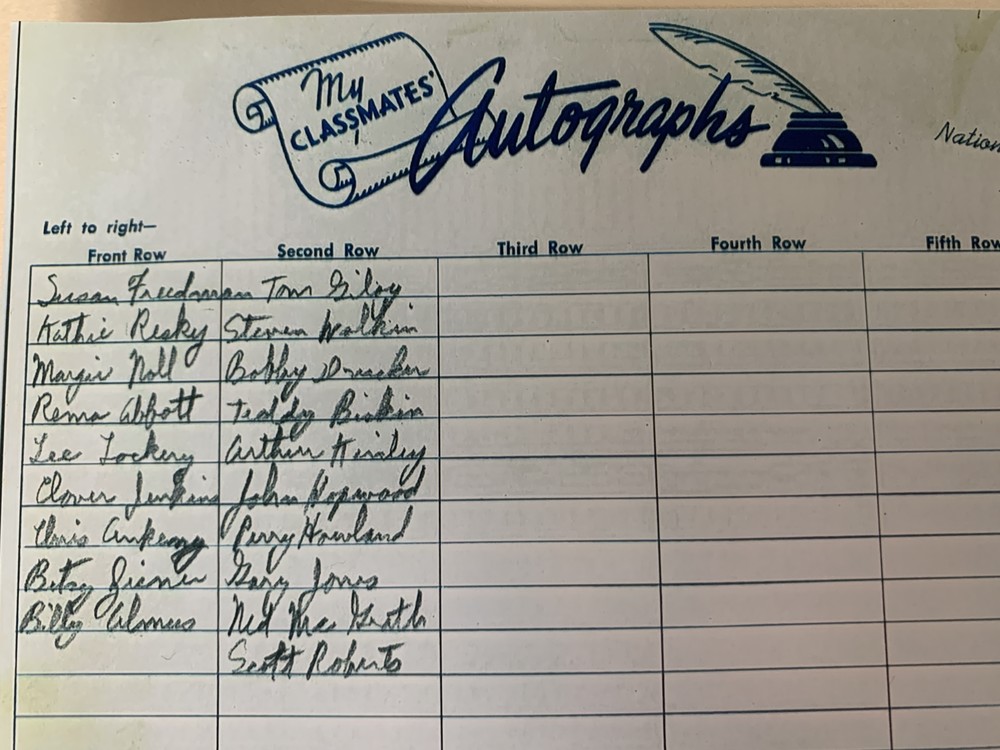 My
CLASSMATES'
Autographs
Nation
Left to right—
Front Row Second Row Third Row Fourth Row Fifth Row
Susan Freedman Tom Gilroy
Kathie Risky Steven
Margie Noll Bobby Drucker
Rema Abbott Teddy
Lee Lockery Arthur
Clover Jenkins John Hopwood
Chris Ankeny Perry Howland
Betsy Gary Jones
Billy Almus Ned McGrath
Scott Roberts